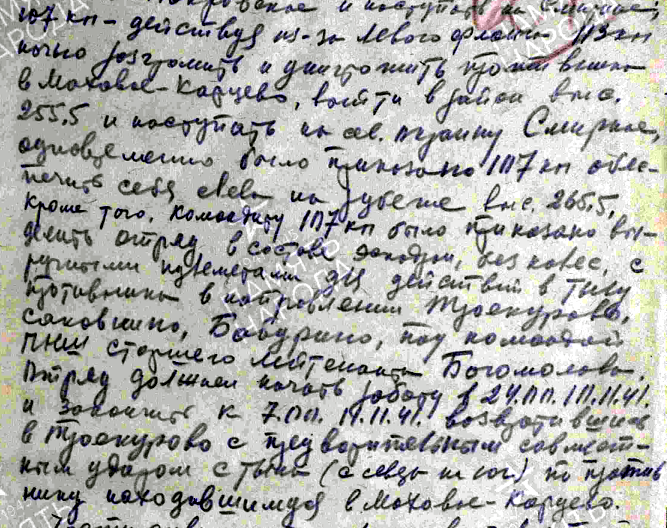 107 кп - действуя из-за левого фланга 113 кп
разгромить и уничтожить противника
в Моховое-Карцево, выйти в район выс.
255,5 и наступать на сев. окраину Смирное,
одновременно было приказано 107 кп обес-
печить себя слева на рубеже выс. 265,5,
кроме того, командиру 107 кп было приказано вы-
делить отряд в составе эскадрон, без колес, с
ручными пулеметами для действий в тылу
противника в направлении Троекурово,
Бабурино, под командой
ПНШ старшего лейтенанта Богомолова.
Отряд должен начать работу в 24.00. 10.11.41.
и закончить к 7.00. 11.11.41. возвратившись
в Троекурово с предварительным совмест-
ным ударом с тыла (с севера на юг) по против
нику находившимуся в Моховое-Карцево.